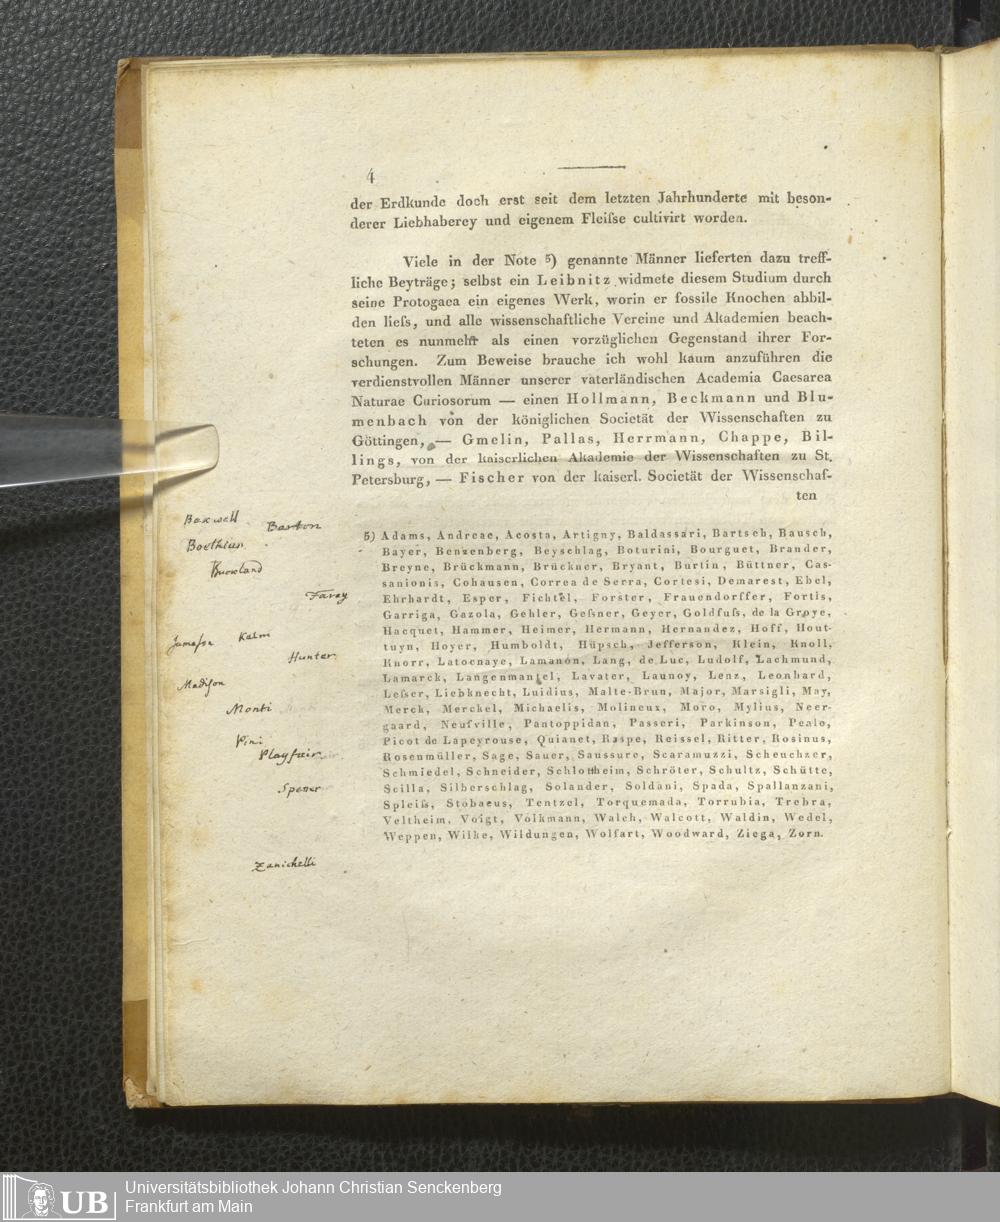 4
der Erdkunde doch erst seit dem letzten Jahrhunderte mit beson-
derer Liebhaberey und eigenem Fleiſse cultivirt worden.
Viele in der Note 5) genannte Männer lieferten dazu treff-
liche Beyträge; selbst ein Leibnitz widmete diesem Studium durch
seine Protogaea ein eigenes Werk, worin er fossile Knochen abbil-
den lieſs, und alle wissenschaftliche Vereine und Akademien beach-
teten es nunmehr als einen vorzüglichen Gegenstand ihrer For-
schungen. Zum Beweise brauche ich wohl kaum anzuführen die
verdienstvollen Männer unserer vaterländischen Academia Caesarea
Naturae Curiosorum — einen Hollmann, Beckmann und Blu-
menbach von der königlichen Societät der Wissenschaften zu
Göttingen, — Gmelin, Pallas, Herrmann, Chappe, Bil-
lings, von der kaiserlichen Akademie der Wissenschaften zu St.
Petersburg, — Fischer von der kaiserl. Societät der Wissenschaf-
ten
Barton
Boethius
Faray
Kalm
Hunter
Madiſon
Monti
Pini
Playfair
Spener
Zanichelli
5) Adams, Andreae, Acosta, Artigny, Baldassari, Bartsch, Bausch,
Bayer, Benzenberg, Beyschlag, Boturini, Bourguet, Brander,
Breyne, Brückmann, Brückner, Bryant, Burtin, Büttner, Cas-
sanionis, Cohausen, Correa de Serra, Cortesi, Demarest, Ebel,
Ehrhardt, Esper, Fichtel, Forster, Frauendorffer, Fortis,
Garriga, Gazola, Gehler, Geſsner, Geyer, Goldfuſs, de la Groye,
Hacquet, Hammer, Heimer, Hermann, Hernandez, Hoff, Hout-
tuyn, Hoyer, Humboldt, Hüpsch, Jefferson, Klein, Knoll,
Knorr, Latocnaye, Lamanon, Lang, de Luc, Ludolf, Lachmund,
Lamarck, Langenmantel, Lavater, Launoy, Lenz, Leonhard,
Leſser, Liebknecht, Luidius, Malte-Brun, Major, Marsigli, May,
Merck, Merckel, Michaelis, Molineux, Moro, Mylius, Neer-
gaard, Neufville, Pantoppidan, Passeri, Parkinson, Peale,
Picot de Lapeyrouse, Quianet, Raspe, Reissel, Ritter, Rosinus,
Rosenmüller, Sage, Sauer, Saussure, Scaramuzzi, Scheuchzer,
Schmiedel, Schneider, Schlottheim, Schröter, Schultz, Schütte,
Scilla, Silberschlag, Solander, Soldani, Spada, Spallanzani,
Spleiſs, Stobaeus, Tentzel, Torquemada, Torrubia, Trebra,
Veltheim, Voigt, Volkmann, Walch, Walcott, Waldin, Wedel,
Weppen, Wilke, Wildungen, Wolfart, Woodward, Ziega, Zorn.
UB
Universitätsbibliothek Johann Christian Senckenberg
Frankfurt am Main